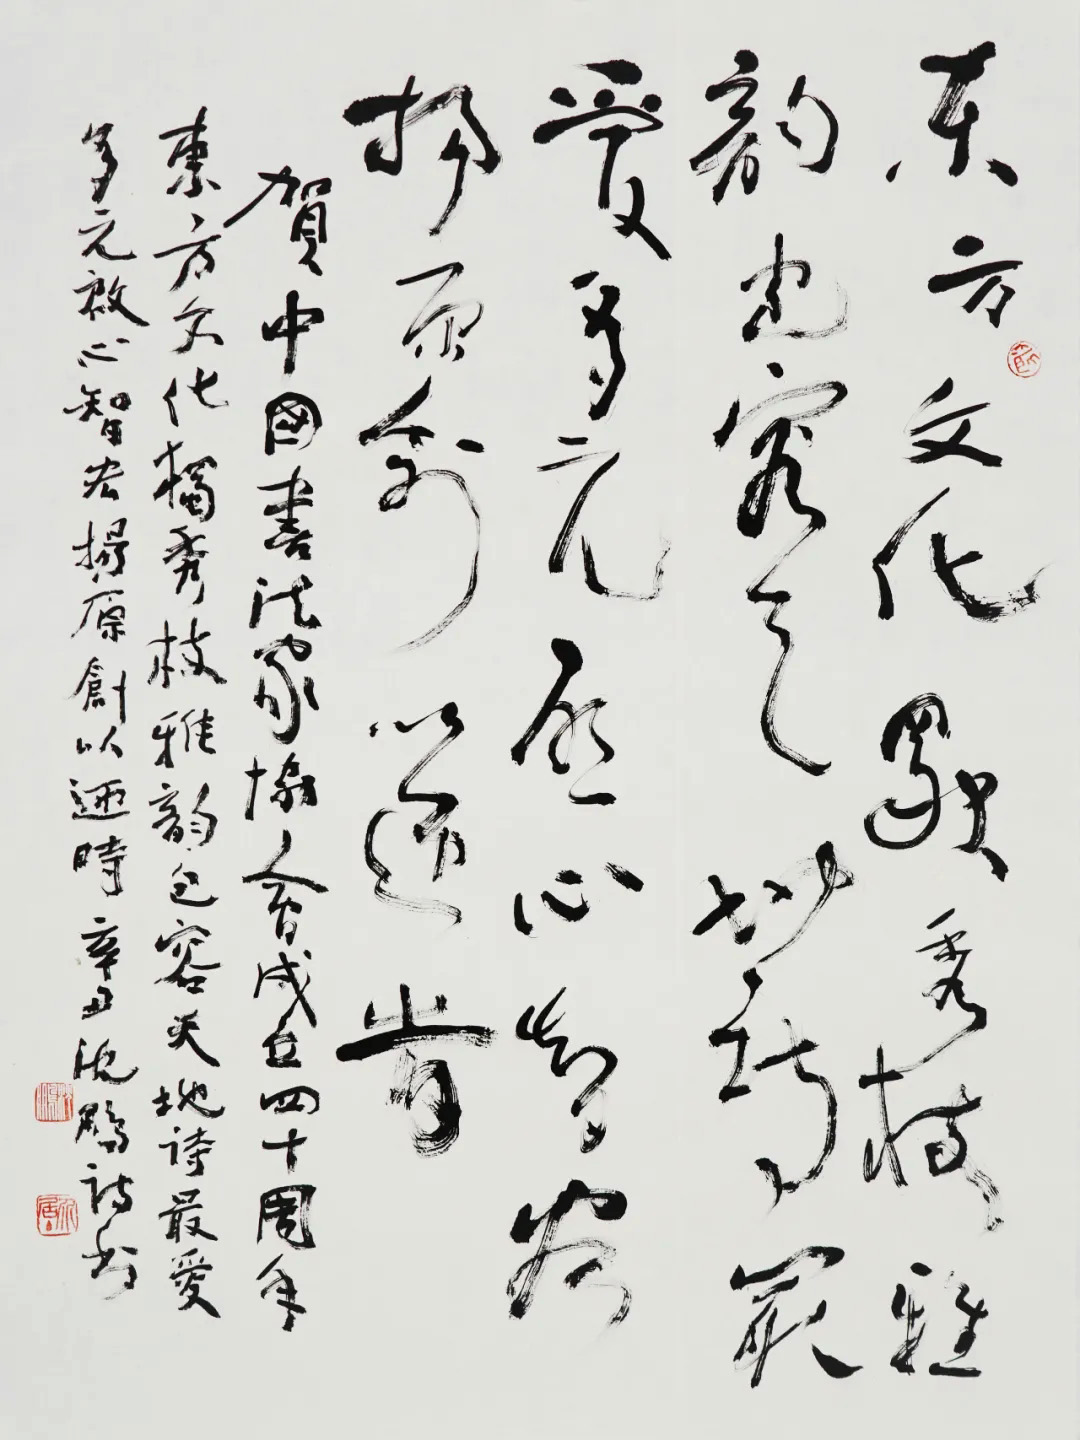 东方文化獨秀枝雅
韵包容天地詩最
愛多元启心智宏
揚原創以適旹
賀中國書法家協會成立四十周年
東方文化獨秀枝雅韵包容天地詩最愛
多元啟心智宏揚原創以適時辛丑沈鵬詩书